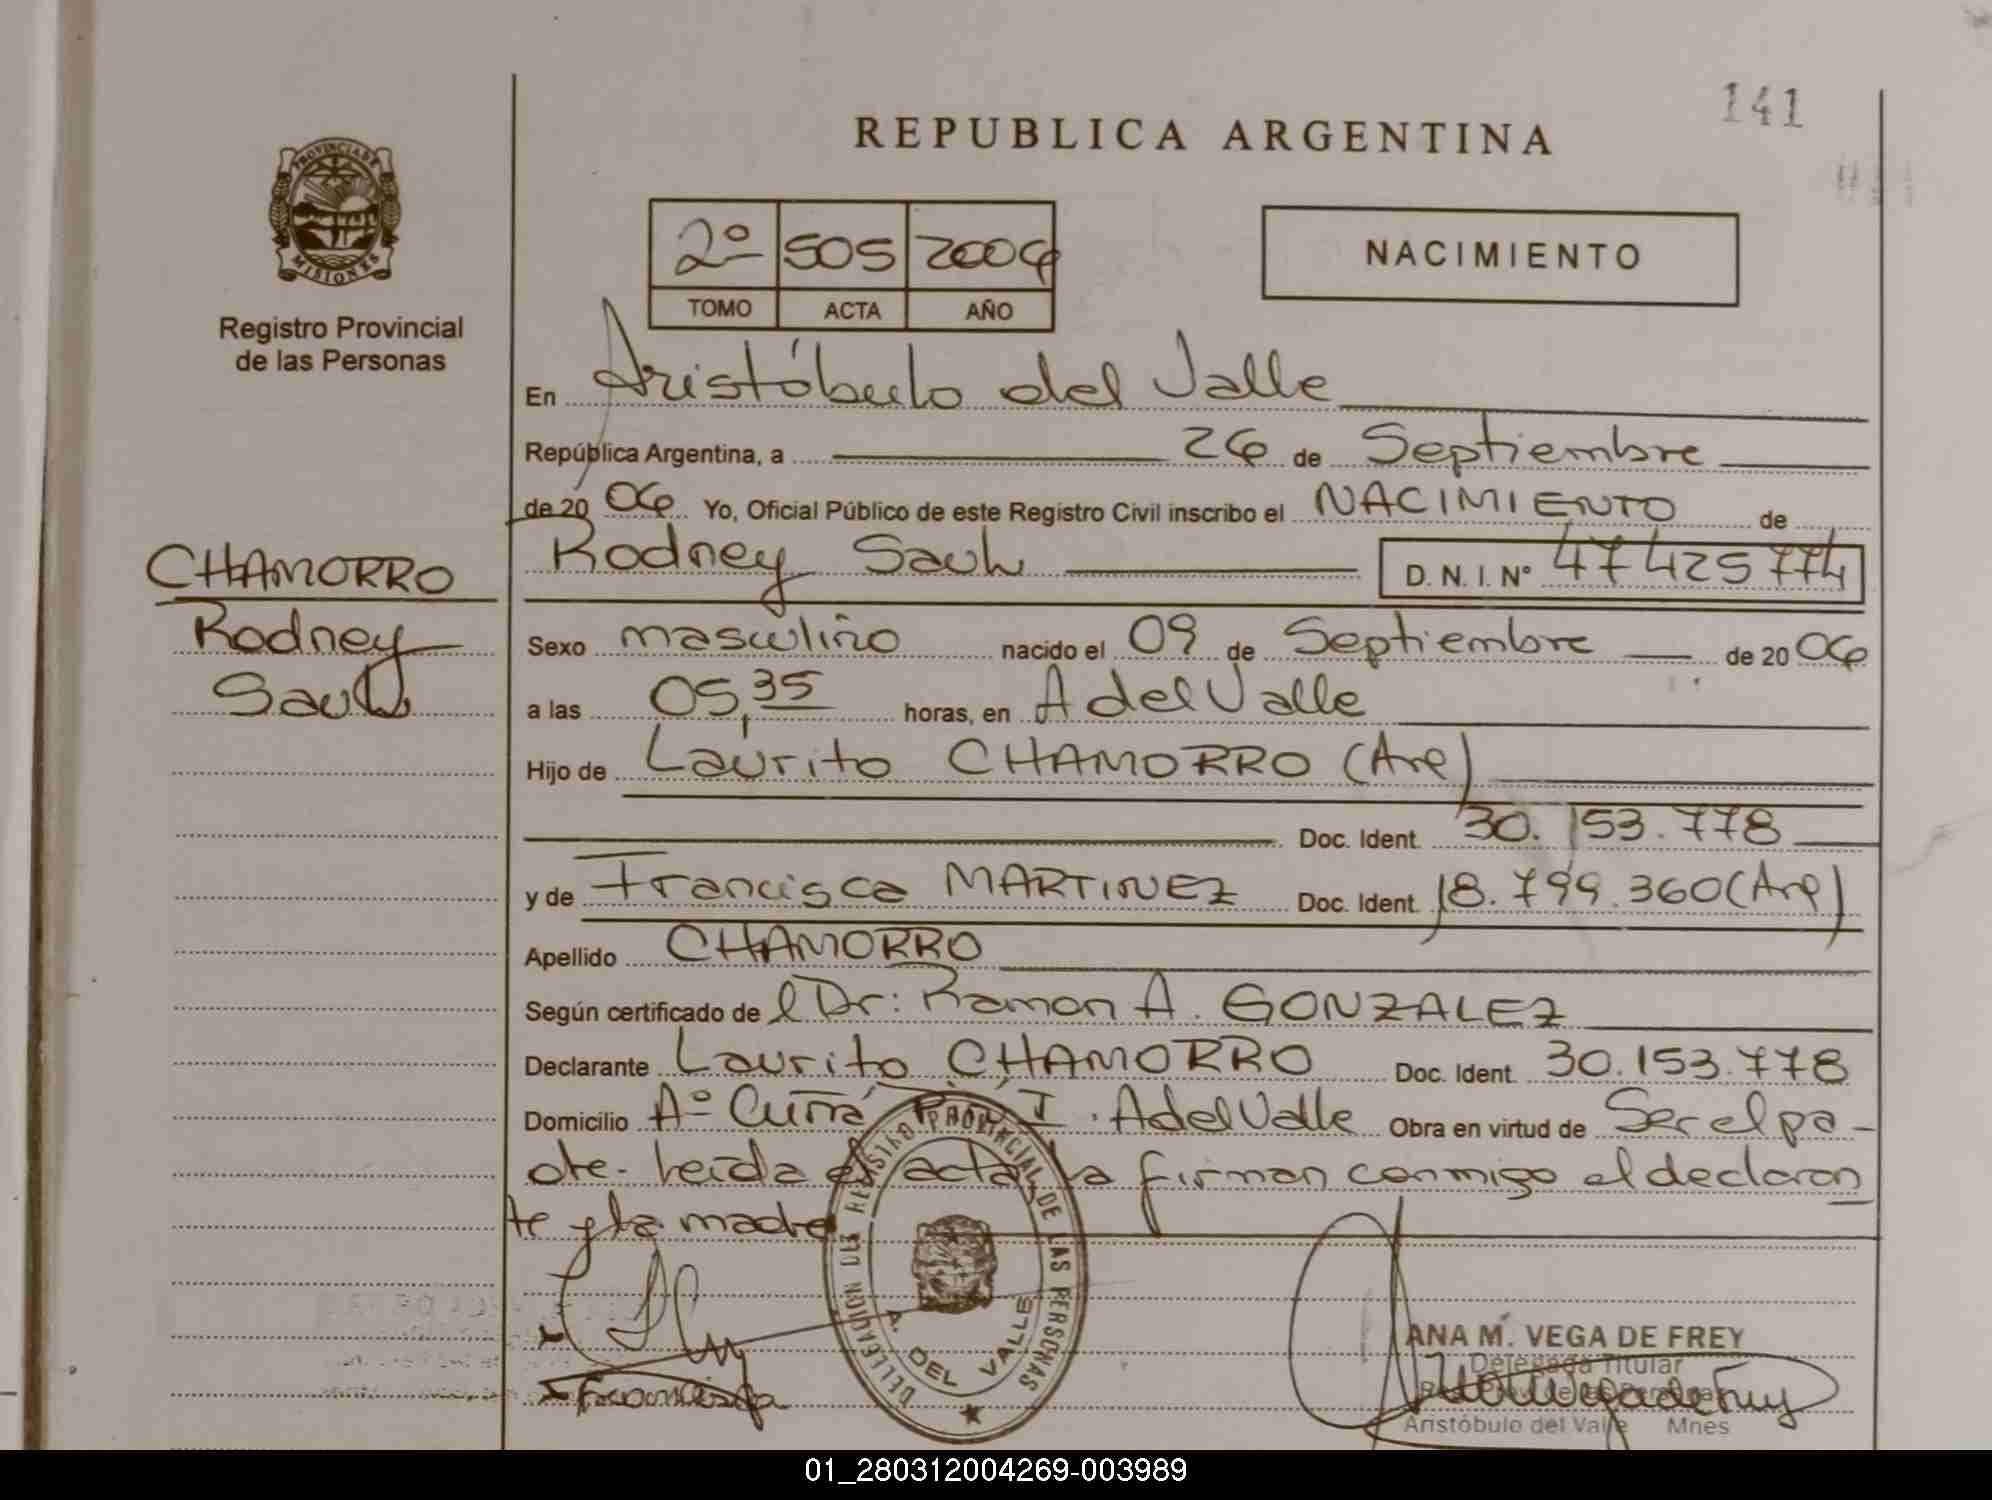 141
REPUBLICA ARGENTINA
PROVINCIA DE MISIONES
Registro Provincial
de las Personas
2º 505 2006
TOMO ACTA AÑO
NACIMIENTO
En Aristóbulo del Valle
República Argentina, a 26 de Septiembre
de 20 06 Yo, Oficial Público de este Registro Civil inscribo el NACIMIENTO de
CHAMORRO
Rodney
Saul
Rodney Saul D. N. I. Nº 47425774
Sexo masculino nacido el 09 de Septiembre de 20 06
a las 05,35 horas, en A del Valle
Hijo de Laurito CHAMORRO (Arg)
Doc. Ident. 30.153.778
y de Francisca MARTINEZ Doc. Ident. 18.799.360 (Arg)
Apellido CHAMORRO
Según certificado de l Dr: Ramon A. GONZALEZ
Declarante Laurito CHAMORRO Doc. Ident. 30.153.778
Domicilio Aº I. A del Valle Obra en virtud de Ser el pa-
dre. Leida el acta la firman conmigo el declaran
te y la madre
DELEGACION DEL REGISTRO PROVINCIAL DE LAS PERSONAS
A. DEL VALLE
Francisca
ANA M. VEGA DE FREY
Delegada Titular
Reg. Prov. de las Personas
Aristóbulo del Valle Mnes
01_280312004269-003989